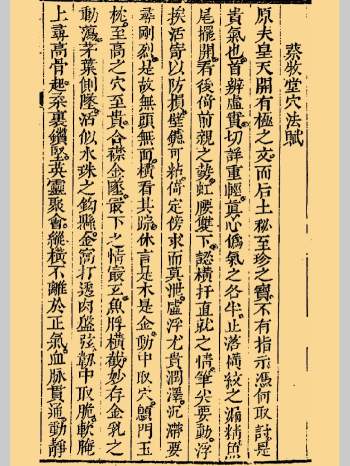 蔡牧堂穴法賦
原夫皇天開有極之文而后土秘至珍之寶不有指示憑何取討是
貴氣也首辨虛實切詳重輕真心偽氣之各半止落橫紋之瀨精魚
尾擺開看後倚前親之勢虹腰雙下認橫扦直就之情筆尖要動浮
挨活窩以防損壁䃶可粘倚定傍求而莫泄虛浮尤貴潤澤沉滯要
尋剛烈是故無頭無面橫看其踪休言是木是金動中取穴顖門玉
枕至高之穴至貴合襟金墜最下之情最玄魚脬橫截妙存金乳之
動蕩茅葉側墜活似水珠之鈎懸金窩打透肉盤弦韌中取脆軟腌
上尋高骨起柔裏鑽堅英靈聚會縱橫不離於正氣血脉貫通動靜